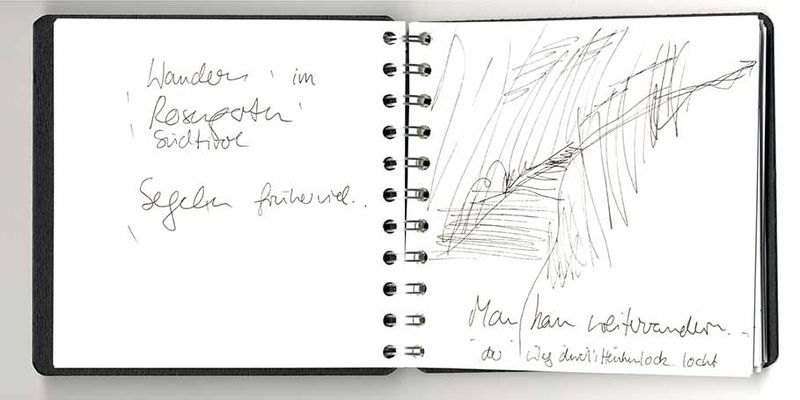 Wandern im
Rosengarten
Südtirol
Segeln früher viel..
Man kann weiterwandern...
der Weg durch's lockt